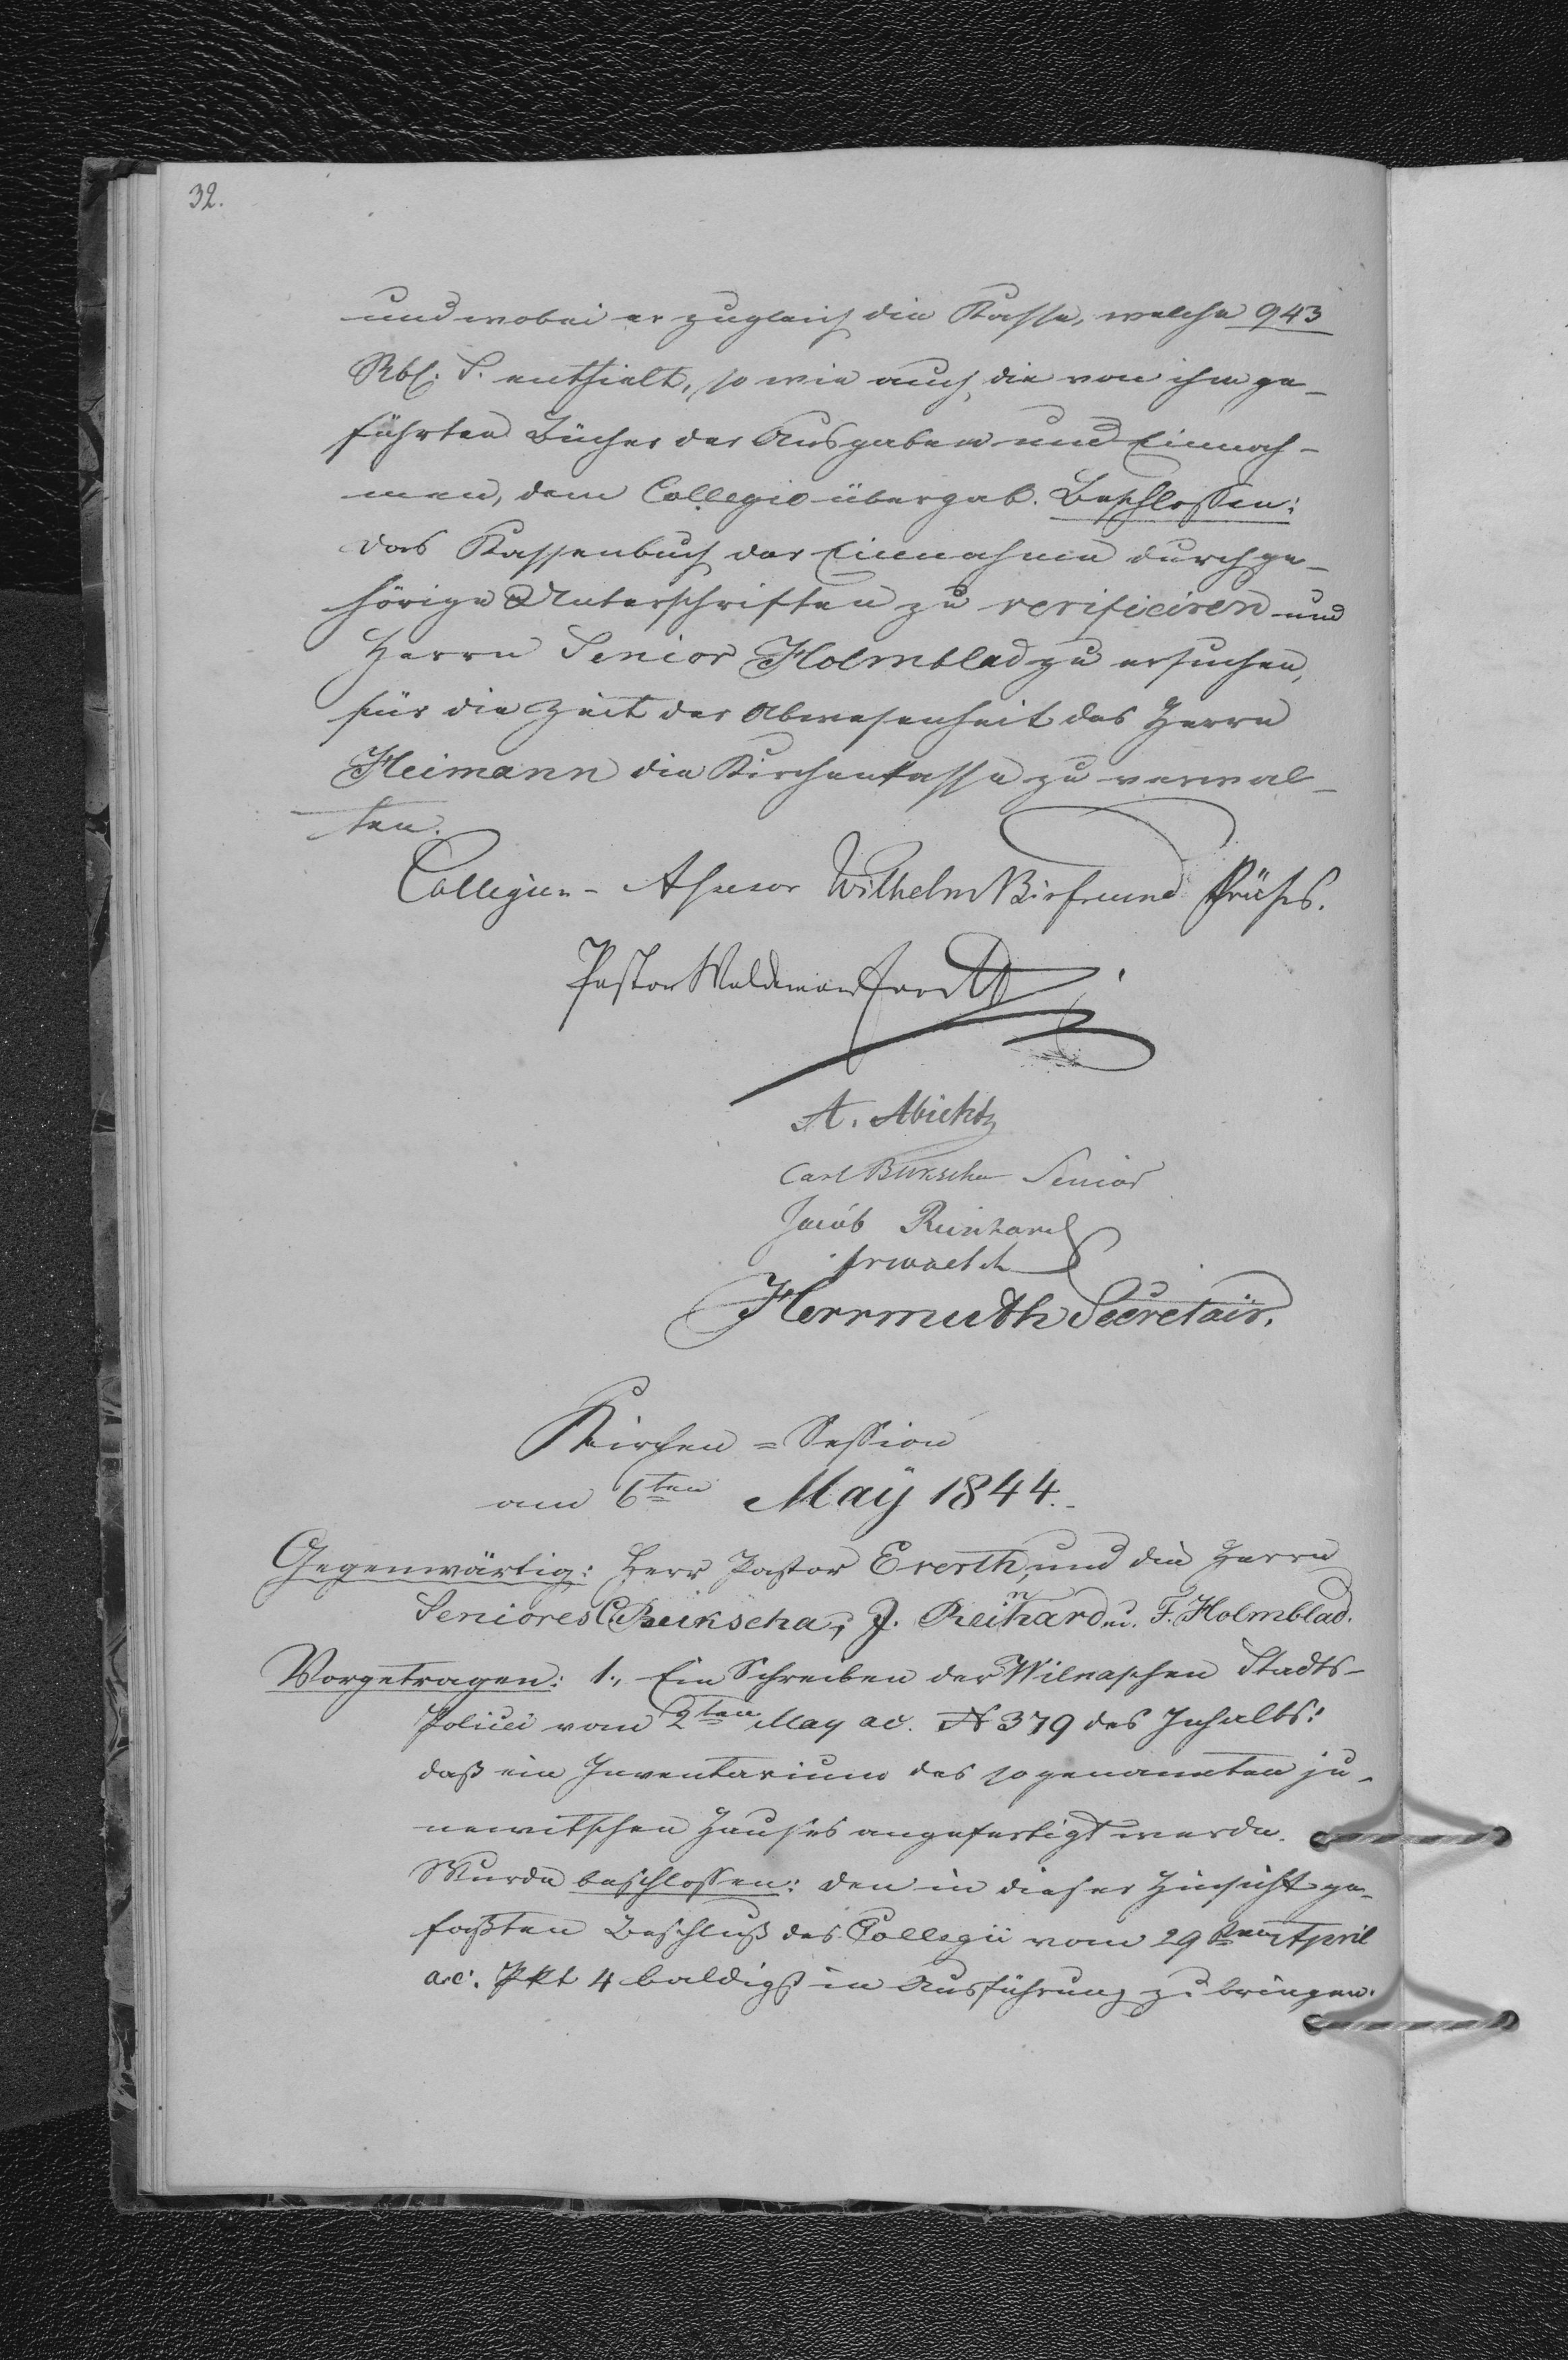 32.
und wobei er zugleich die Kasse, welche 943
Rbl. S. enthielt, so wie auch die von ihm ge-
führten Bücher der Ausgaben und Einnah-
men, dem Collegio übergab. Beschlossen:
das Kassenbuch der Einnahmen durch ge-
hörige Unterschriften zu verificiren und
Herrn Senior Holmblad zu ersuchen,
für die Zeit der Abwesenheit des Herrn
Heimann die Kirchenkasse zu verwal-
ten.
Collegien-Assessor Wilhelm Präses.
Pastor Woldemar
A. Abicht
Carl Bukscha Senior
Jacob Reinhard
Herrmuth Secretair.
Kirchen=Session
am 6ten Maÿ 1844.
Gegenwärtig: Herr Pastor Everth, und die Herrn
Seniores C Bukscha, J. Reinhard u. F. Holmblad.
Vorgetragen: 1., Ein Schreiben der Wilnaschen Stadts-
Policei vom 2ten May ac. N 379 des Inhalts:
daß ein Inventarium des sogenannten ju-
newitschen Hauses angefertigt werde.
Wurde beschlossen: den in dieser Hinsicht ge-
faßten Beschluß des Collegii vom 29ten April
a.c. Pkt 4 baldigst in Ausführung zu bringen.